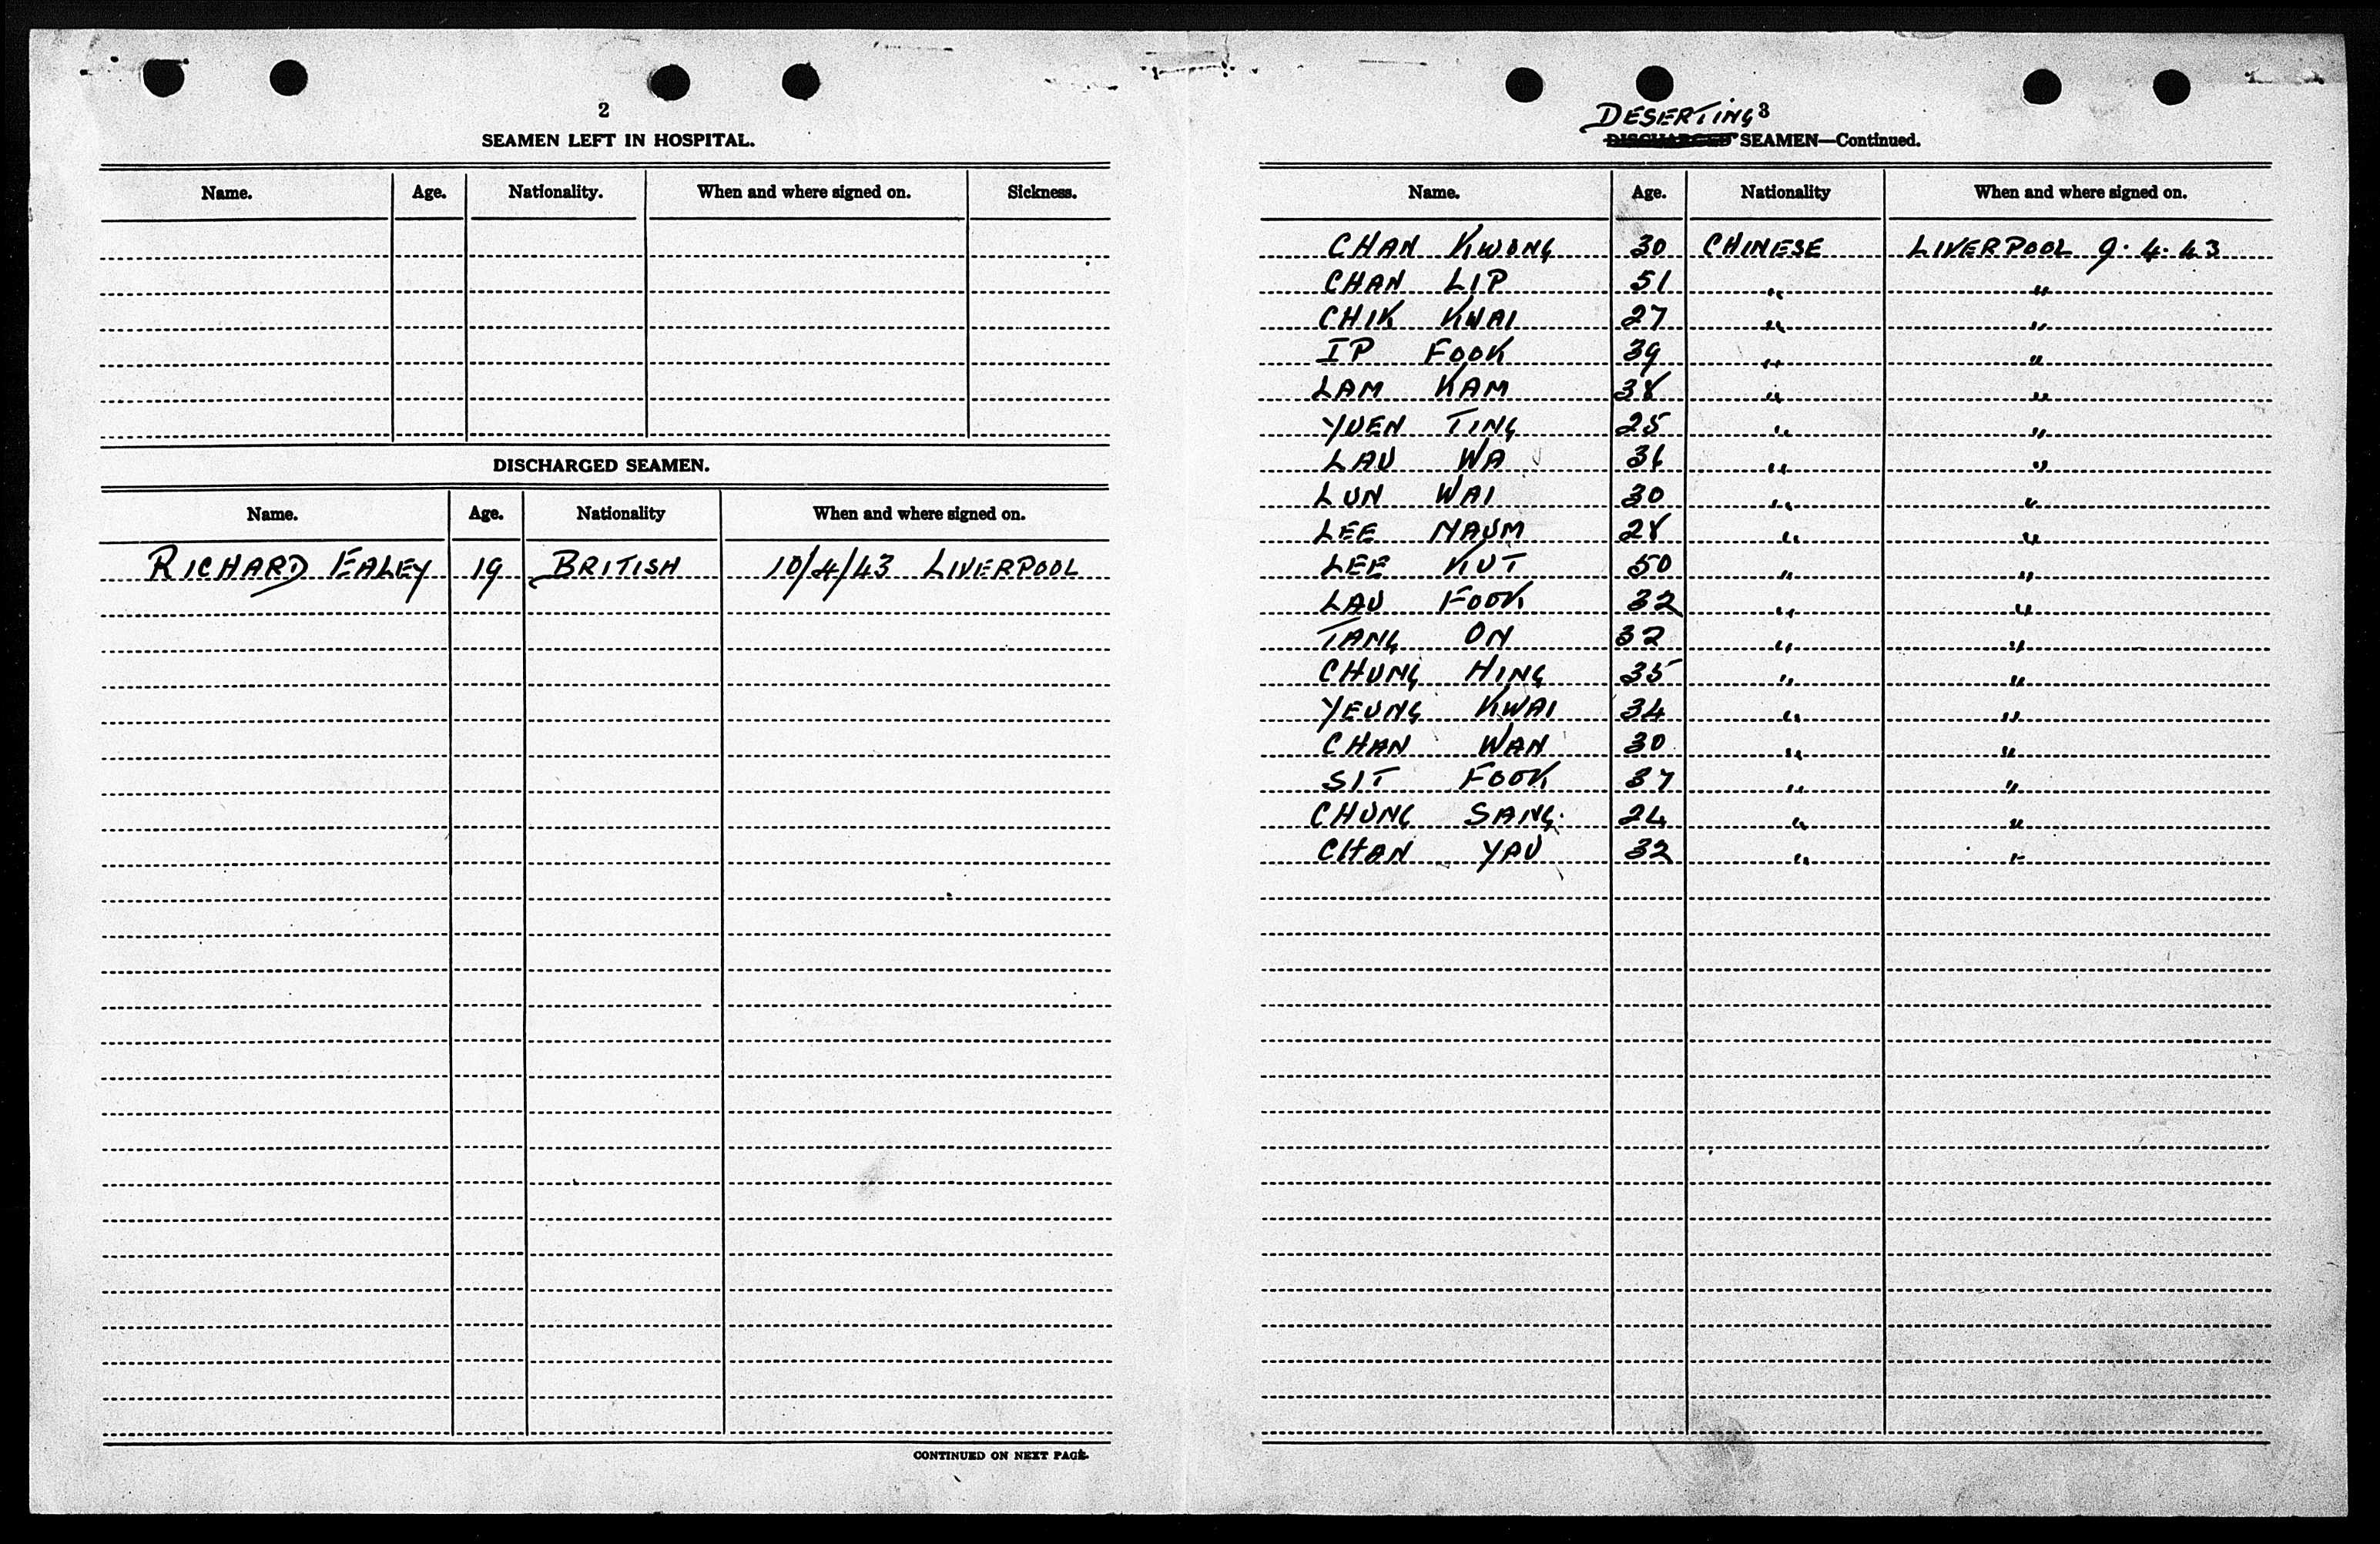 2
SEAMEN LEFT IN HOSPITAL.
Name. Age. Nationality. When and where signed on. Sickness.
DISCHARGED SEAMEN.
Name. Age. Nationality When and where signed on.
RICHARD EALEY 19 BRITISH 10/4/43 LIVERPOOL
CONTINUED ON NEXT PAGE.
DESERTING 3
DISCHARGED SEAMEN—Continued.
Name. Age. Nationality When and where signed on.
CHAN KWONG 30 CHINESE LIVERPOOL 9.4.43
CHAN LIP 51 " "
CHIK KWAI 27 " "
IP FOOK 39 " "
LAM KAM 38 " "
YUEN TING 25 " "
LAU WA " "
LUN WAI 30 " "
LEE NAUM 28 " "
LEE KUT 50 " "
LAU FOOK 32 " "
TANG ON 32 " "
CHUNG HING 35 " "
YEUNG KWAI 34 " "
CHAN WAN 30 " "
SIT FOOK 37 " "
CHUNG SANG. 24 " "
CHAN YAU 32 " "